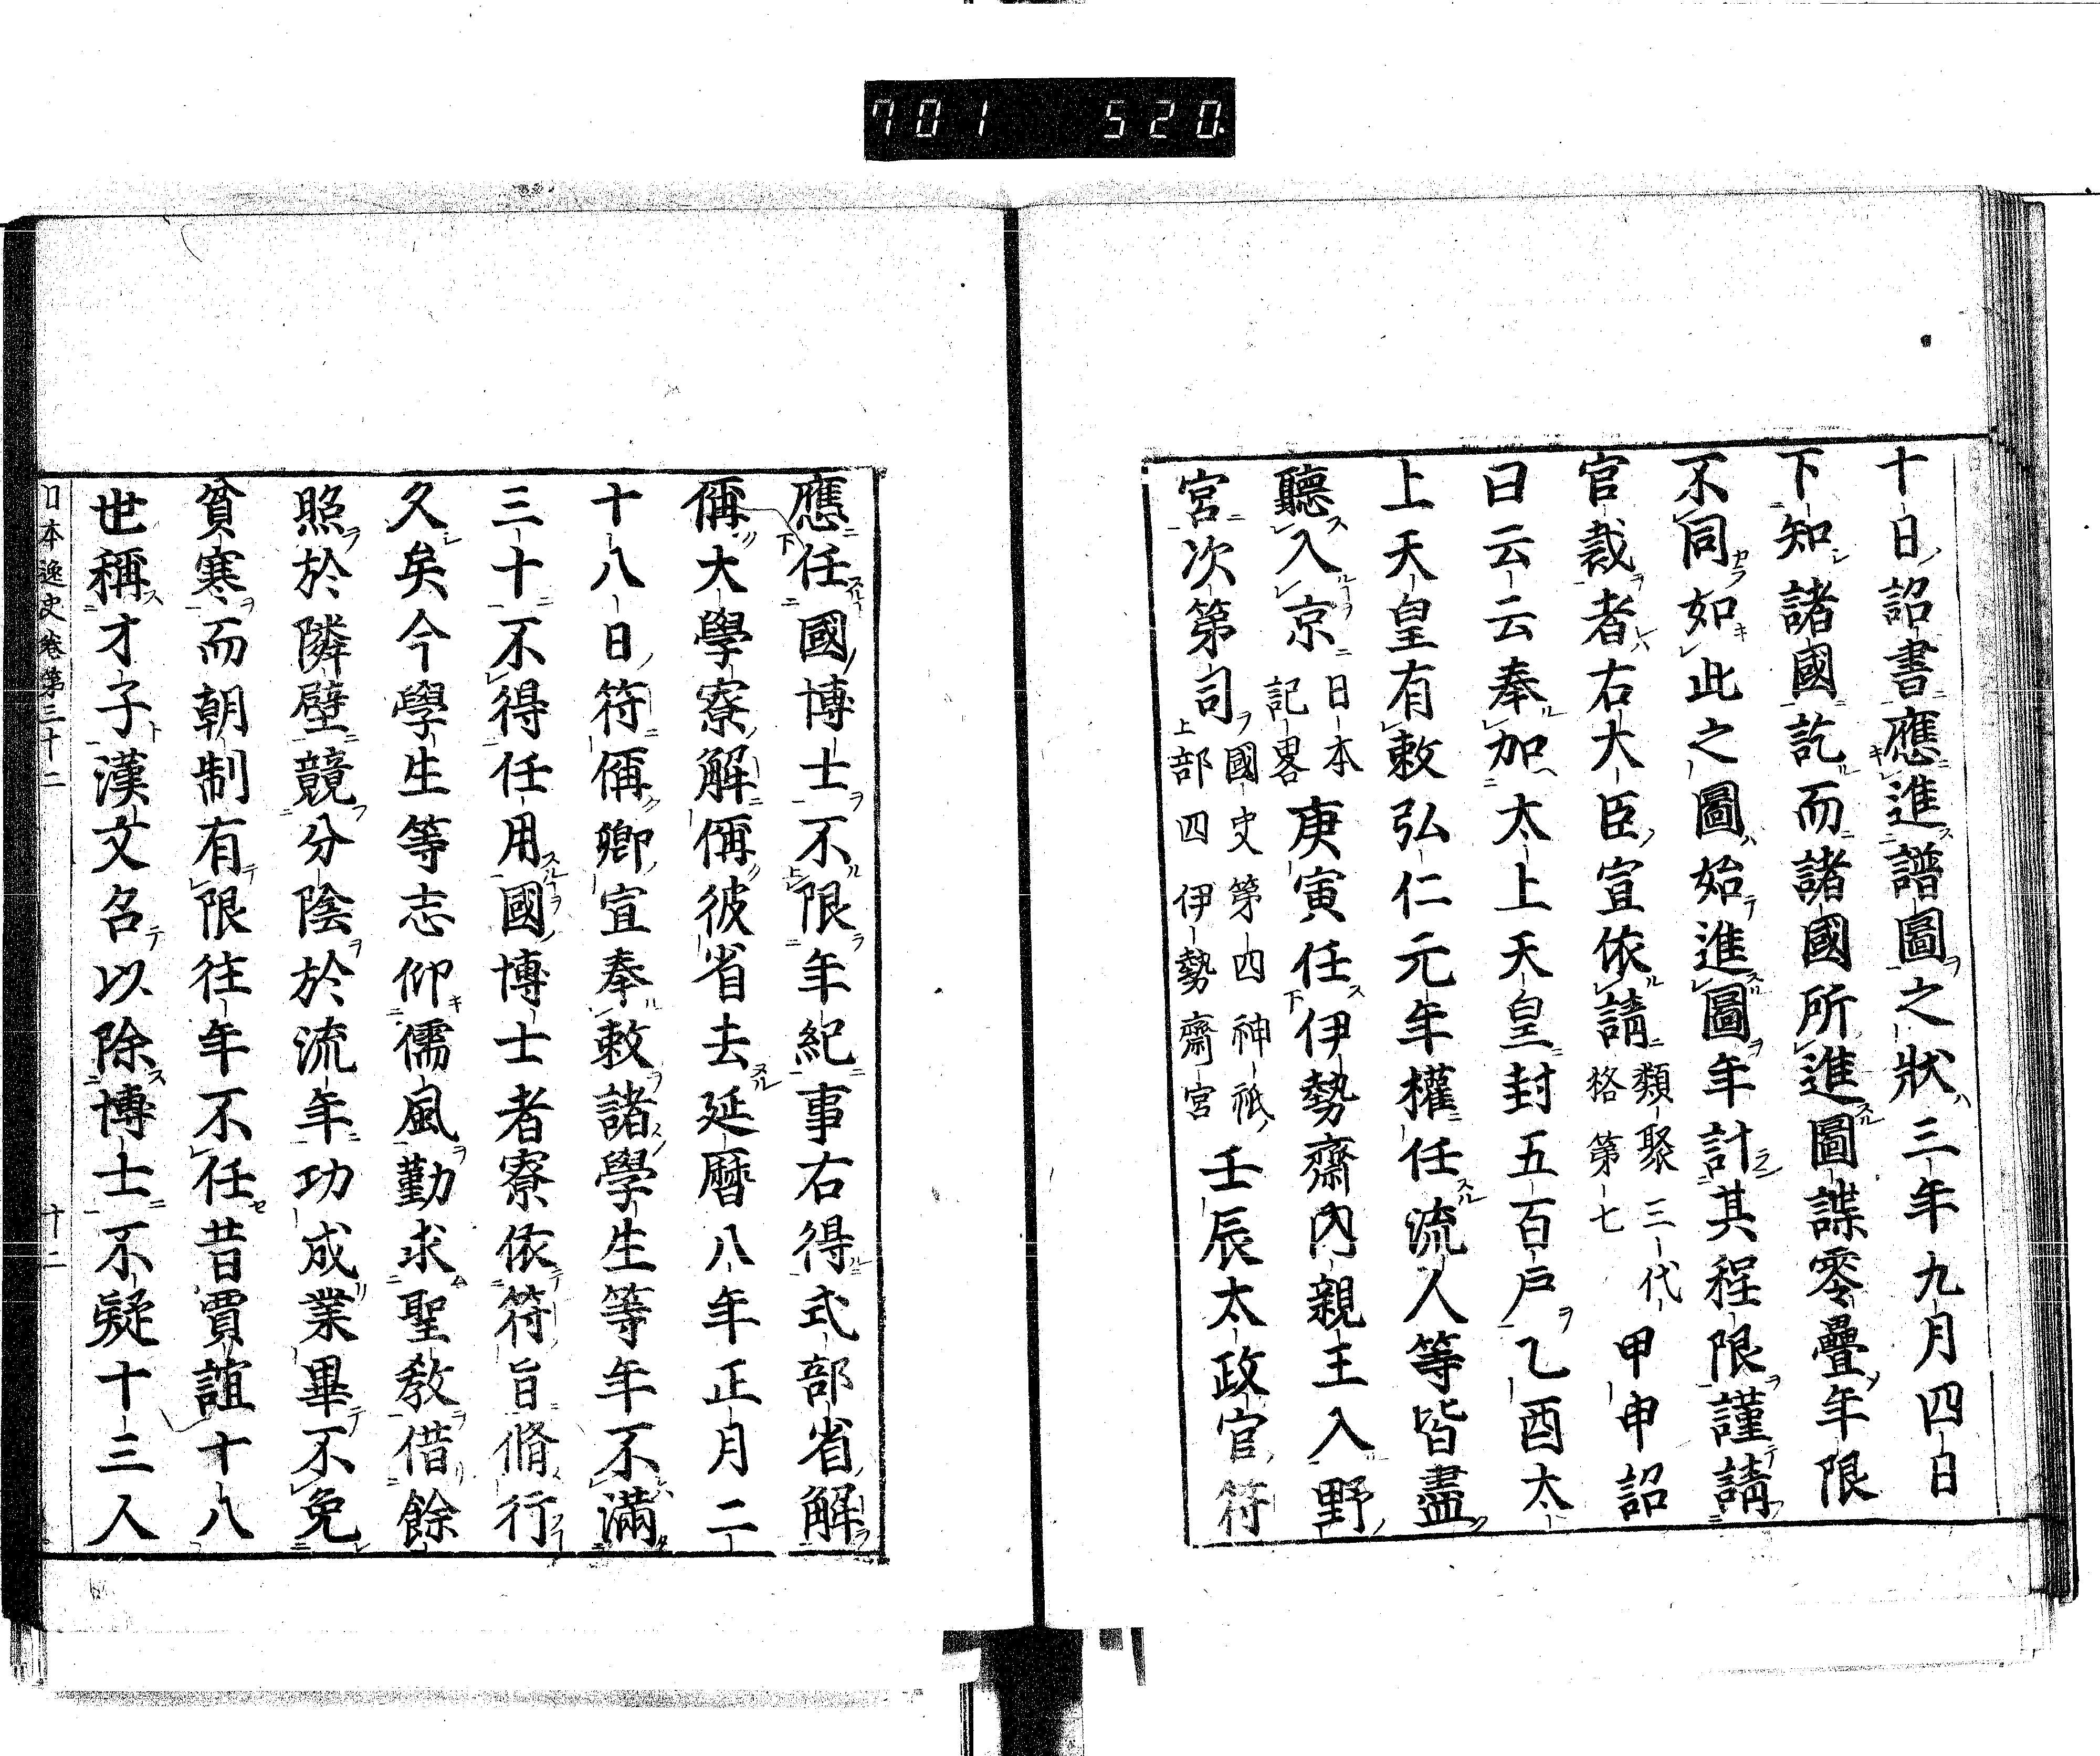 701 520
十日詔書應進譜圖之狀三年九月四日
下知諸國訖而諸國所進圖諜零疊年限
不同如此之圖始進圖年計其程限謹請
官裁者右大臣宣依請類聚三代格第七甲申詔
曰云云奉加太上天皇封五百戸乙酉太
上天皇有敕弘仁元年權任流人等皆盡
聽入京日本記畧庚寅任伊勢齋內親王入野
宮次第司國史第四神祇部四伊勢齋宮上壬辰太政官符
應任國博士不限年紀事右得式部省解
偁大學寮解偁彼省去延曆八年正月二
十八日符偁卿宣奉敕諸學生等年不滿
三十不得任用國博士者寮依符旨脩行
久矣今學生等志仰儒風勤求聖教借餘
照於隣壁競分陰於流年功成業畢不免
貧寒而朝制有限往年不任昔賈誼十八
世稱才子漢文名以除博士不疑十三人
日本逸史卷第三十二 十二